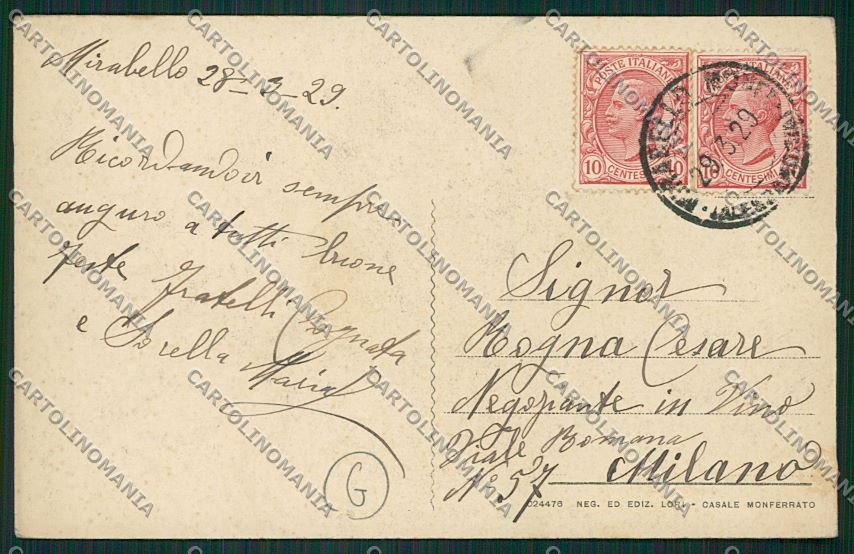 Mirabello 28-3-29.
Ricordandovi sempre
auguro a tutti buone
feste fratelli Cognata
e Sorella Maria
G
POSTE ITALIANE
10 10
CENTESIMI
POSTE ITALIANE
10
CENTESIMI
MIRABELLO MONFERRATO
29.3.29
(ALESSANDRIA)
Signor
Rogna Cesare
Negoziante in Vino
Viale Romana
No 57 Milano
024476 NEG. ED EDIZ. LORI - CASALE MONFERRATO
CARTOLINOMANIA